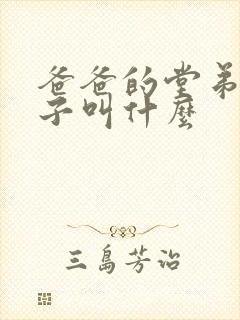 爸爸的堂弟
子叫什麼
三島芳治